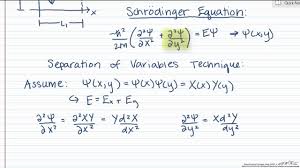 Schrödinger Equation:
-ħ²/2m (∂²Ψ/∂x² + ∂²Ψ/∂y²) = EΨ → Ψ(x,y)
L₁
Separation of Variables Technique:
Assume: Ψ(x,y) = Ψ(x)Ψ(y) = X(x)Y(y)
↳ E = Ex + Ey
∂²Ψ/∂x² = ∂²XY/∂x² = Y d²X/dx² ∂²Ψ/∂y² = X d²Y/dy²